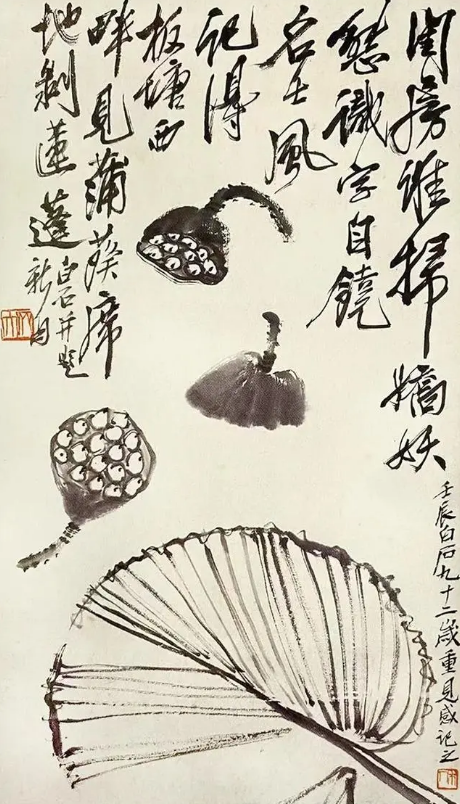 閨房誰掃嬌妖
態識字自饒
名士風
記得
板塘西
畔見蒲葵席
地剝蓮蓬
白石并題
新句
壬辰白石九十二歲重見感記之